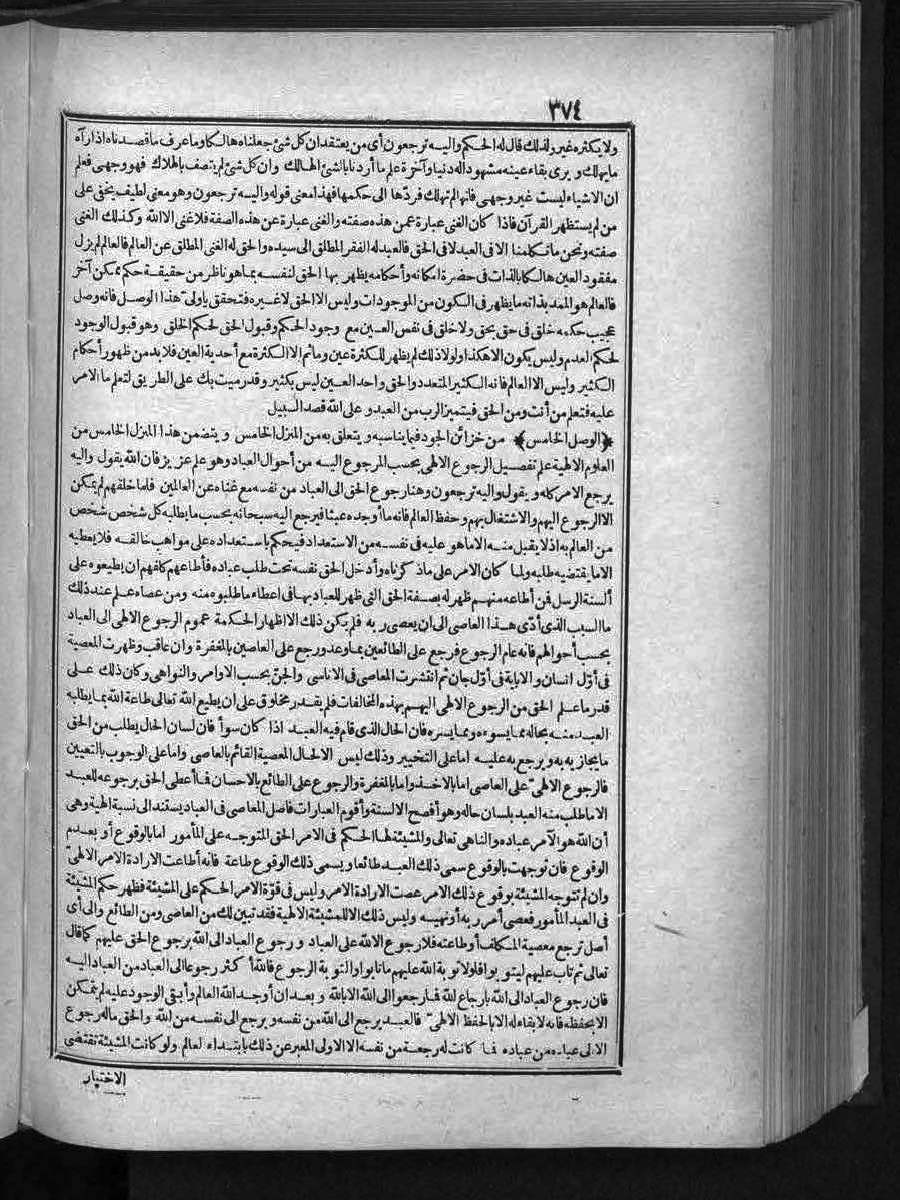 ٣٧٤
ولا يكثره غير ولذلك قال له الحكم واليه ترجعون أى من يعتقد ان كل شئ جعلناه هالكا وما عرف ما قصدناه اذا رآه
ما يهلك ويرى بقاء عينه مشهودا له دنيا وآخرة علم ما أردنا بالشئ الهالك وان كل شئ لم يتصف بالهلاك فهو وجهى فعلم
ان الاشياء ليست غير وجهى فانها لم تهلك فردّها الى حكمها فهذا معنى قوله واليه ترجعون وهو معنى لطيف يخفى على
من لم يستظهر القرآن فاذا كان الغنى عبارة عمن هذه صفته والغنى عبارة عن هذه الصفة فلا غنى الا الله وكذلك الغنى
صفته ونحن ما تكلمنا الا فى العبد لا فى الحق فالعبد له الفقر المطلق الى سيده والحق له الغنى المطلق عن العالم فالعالم لم يزل
مفقود العين هالكا بالذات فى حضرة امكانه وأحكامه يظهر بها الحق لنفسه بما هو ناظر من حقيقة حكم ممكن آخر
فالعالم هو الممد بذاته ما يظهر فى الكون من الموجودات وليس الا الحق لا غيره فتحقق ياولىّ هذا الوصل فانه وصل
عجيب حكمه خلق فى حق بحق ولا خلق فى نفس العين مع وجود الحكم وقبول الحق لحكم الخلق وهو قبول الوجود
لحكم العدم وليس يكون الا هكذا ولولا ذلك لم يظهر للكثرة عين وما ثم الا الكثرة مع أحدية العين فلا بد من ظهور أحكام
الكثير وليس الا العالم فانه الكثير المتعدد والحق واحد العين ليس بكثير وقد رميت بك على الطريق لتعلم ما الامر
عليه فتعلم من أنت ومن الحق فيتميز الرب من العبد وعلى الله قصد السبيل
﴿الوصل الخامس﴾ من خزائن الجود فيما يناسبه ويتعلق به من المنزل الخامس ويتضمن هذا المنزل الخامس من
العلوم الالهية علم تفصيل الرجوع الالهى بحسب المرجوع اليه من أحوال العباد وهو علم عزيز فان الله يقول واليه
يرجع الامر كله ويقول واليه ترجعون وهنا رجوع الحق الى العباد من نفسه مع غناه عن العالمين فلما خلقهم لم يمكن
الا الرجوع اليهم والاشتغال بهم وحفظ العالم فانه ما أوجده عبثا فيرجع اليه سبحانه بحسب ما يطلبه كل شخص شخص
من العالم به اذ لا يقبل منه الا ما هو عليه فى نفسه من الاستعداد فيحكم باستعداده على مواهب خالقه فلا يعطيه
الا ما يقتضيه طلبه ولما كان الامر على ما ذكرناه وأدخل الحق نفسه تحت طلب عباده فأطاعهم كلفهم ان يطيعوه على
ألسنة الرسل فمن أطاعه منهم ظهر له بصفة الحق التى ظهر للعباد بها فى اعطاء ما طلبوه منه ومن عصاه علم عند ذلك
ما السبب الذى أدّى هذا العاصى الى ان يعصى ربه فلم يكن ذلك الا اظهار الحكمة عموم الرجوع الالهى الى العباد
بحسب أحوالهم فانه عام الرجوع فرجع على الطائعين بما وعد ورجع على العاصين بالمغفرة وان عاقب وظهرت المعصية
فى أوّل انسان والاباية فى أوّل جان ثم انتشرت المعاصى فى الاناسى والجنّ بحسب الاوامر والنواهى وكان ذلك على
قدر ما علم الحق من الرجوع الالهى اليهم بهذه المخالفات فلم يقدر مخلوق على ان يطيع الله تعالى طاعة الله بما يطلبه
العبد منه بحاله مما يسوءه ومما يسره فان الحال الذى قام فيه العبد اذا كان سوأ فان لسان الحال يطلب من الحق
ما يجازيه به ويرجع به عليه اما على التخيير وذلك ليس الا لحال المعصية القائم بالعاصى واما على الوجوب بالتعيين
فالرجوع الالهىّ على العاصى اما بالاخذ واما بالمغفرة والرجوع على الطائع بالاحسان فما أعطى الحق برجوعه للعبد
الا ما طلب منه العبد بلسان حاله وهو أفصح الالسنة وأقوم العبارات فاصل المعاصى فى العباد يستند الى نسبة الهية وهى
أن الله هو الآمر عباده والناهى تعالى والمشيئة لها الحكم فى الامر الحق المتوجه على المأمور اما بالوقوع أو بعدم
الوقوع فان توجهت بالوقوع سمى ذلك العبد طائعا ويسمى ذلك الوقوع طاعة فانه أطاعت الارادة الامر الالهىّ
وان لم تتوجه المشيئة بوقوع ذلك الامر عصت الارادة الامر وليس فى قوّة الامر الحكم على المشيئة فظهر حكم المشيئة
فى العبد المأمور فعصى أمر ربه أو نهيه وليس ذلك الا للمشيئة الالهية فقد تبين لك من العاصى ومن الطائع والى أى
أصل ترجع معصية المكلف أو طاعته فلا رجوع الا لله على العباد ورجوع العباد الى الله برجوع الحق عليهم كما قال
تعالى ثم تاب عليهم ليتوبوا فلولا توبة الله عليهم ما تابوا والتوبة الرجوع فالله أكثر رجوعا الى العباد من العباد اليه
فان رجوع العباد الى الله بارجاع الله فما رجعوا الى الله الا بالله وبعد ان أوجد الله العالم وأبقى الوجود عليه لم يتمكن
الا بحفظه فانه لا بقاء له الا بالحفظ الالهىّ فالعبد يرجع الى الله من نفسه ويرجع الى نفسه من الله والحق ماله رجوع
الا الى عباده من عباده فما كانت له رجعة من نفسه الا الاولى المعبر عن ذلك بابتداء لعالم ولو كانت المشيئة تقتضى
الاختيار